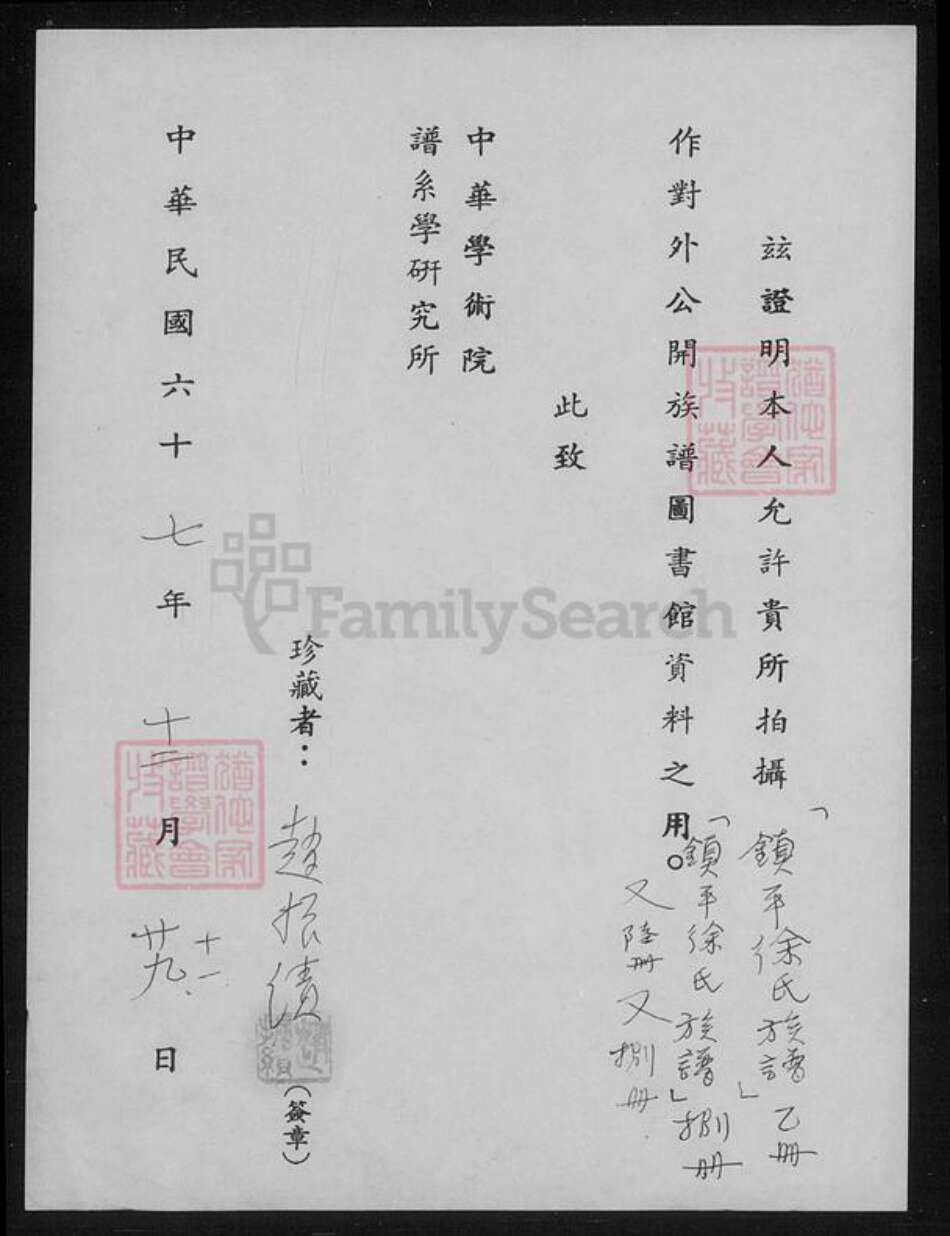 玆證明本人允許貴所拍攝「鎮平徐氏族譜」乙册
作對外公開族譜圖書館資料之用。「鎮平徐氏族譜」捌册
又陸册又捌册
此致
中華學術院
譜系學研究所
珍藏者：趙振績（簽章）
中華民國六十七年十二月廿九日
十一
FamilySearch